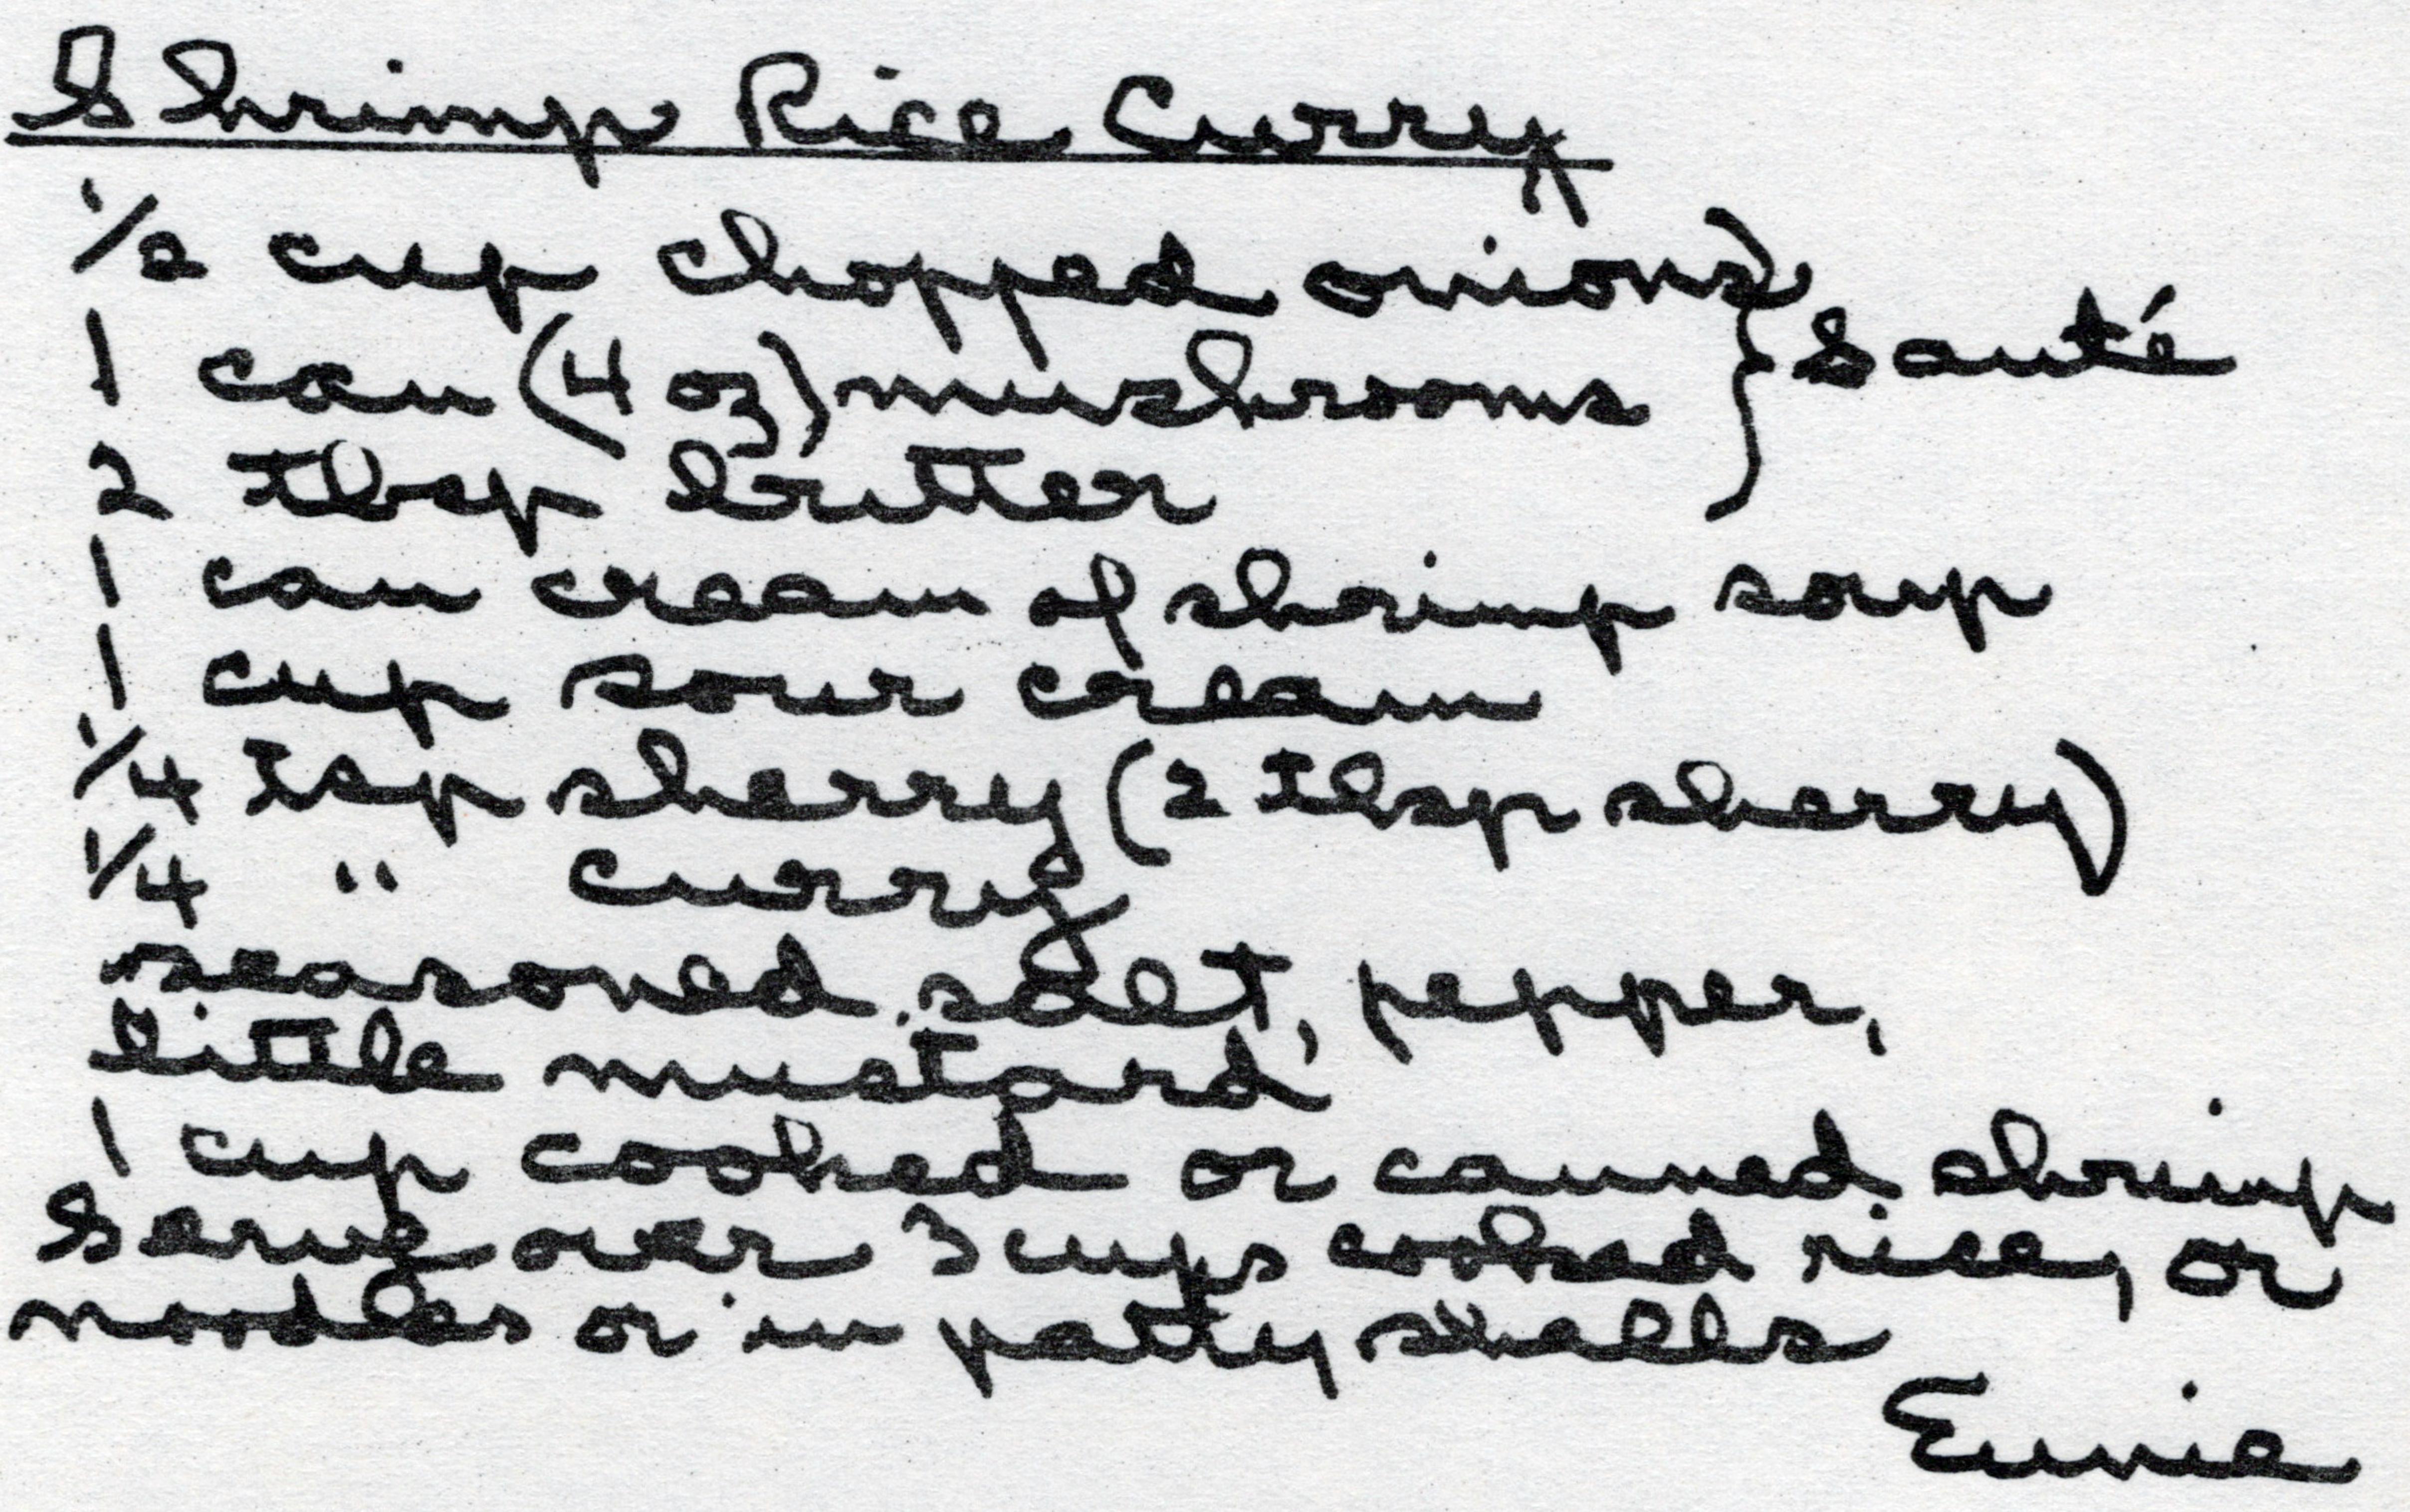 Shrimp Rice Curry
1/2 cup chopped onions
1 can (4 oz) mushrooms } Sauté
2 Tbsp butter
1 can cream of shrimp soup
1 cup sour cream
1/4 tsp sherry (2 Tbsp sherry)
1/4 " curry
seasoned salt, pepper,
little mustard
1 cup cooked or canned shrimp
Serve over 3 cups cooked rice, or
noodles or in patty shells
Eunie